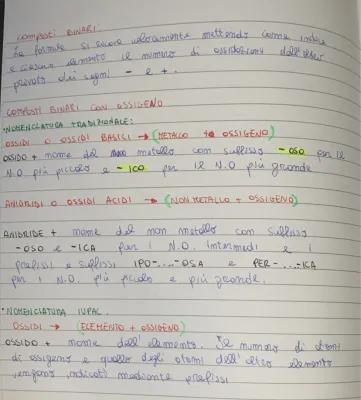 COMPOSTI BINARI:
Le formule si scrive velocemente mettendo come indice
a ciascun elemento il numero di ossidazione dell'altro
privato dei segni - e +.
COMPOSTI BINARI CON OSSIGENO
•NOMENCLATURA TRADIZIONALE:
OSSIDI O OSSIDI BASICI → (METALLO + OSSIGENO)
OSSIDO + nome del metallo con suffisso -OSO per il
N.O più piccolo e -ICO per il N.O più grande
ANIDRIDI O OSSIDI ACIDI → (NON METALLO + OSSIGENO)
ANIDRIDE + nome del non metallo con suffisso
-OSO e -ICA per i N.O. intermedi e i
prefissi e suffissi IPO-...-OSA e PER-...-ICA
per i N.O. più piccolo e più grande.
•NOMENCLATURA IUPAC.
OSSIDI → (ELEMENTO + OSSIGENO)
OSSIDO + nome dell'elemento. Il numero di atomi
di ossigeno e quello degli atomi dell'altro elemento
vengono indicati mediante prefissi